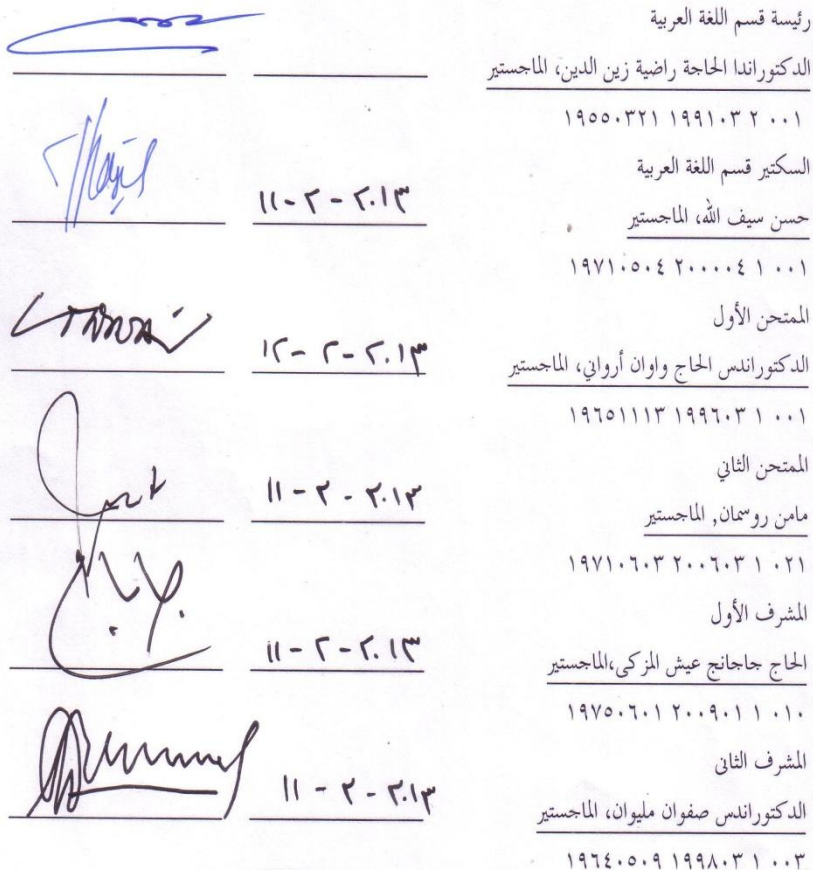 رئيسة قسم اللغة العربية
الدكتوراندا الحاجة راضية زين الدين، الماجستير
١٩٥٥٠٣٢١ ١٩٩١٠٣ ٢ ٠٠١
السكتير قسم اللغة العربية
حسن سيف الله، الماجستير
١١-٢-٢٠١٣
١٩٧١٠٥٠٤ ٢٠٠٠٠٤ ١ ٠٠١
الممتحن الأول
الدكتوراندس الحاج واوان أرواني، الماجستير
١٢-٢-٢٠١٣
١٩٦٥١١١٣ ١٩٩٦٠٣ ١ ٠٠١
الممتحن الثاني
مامن روسمان, الماجستير
١١-٢-٢٠١٣
١٩٧١٠٦٠٣ ٢٠٠٦٠٣ ١ ٠٢١
المشرف الأول
الحاج جاجانج عيش المزكى،الماجستير
١١-٢-٢٠١٣
١٩٧٥٠٦٠١ ٢٠٠٩٠١ ١ ٠١٠
المشرف الثانى
الدكتوراندس صفوان مليوان، الماجستير
١١-٢-٢٠١٣
١٩٦٤٠٥٠٩ ١٩٩٨٠٣ ١ ٠٠٣